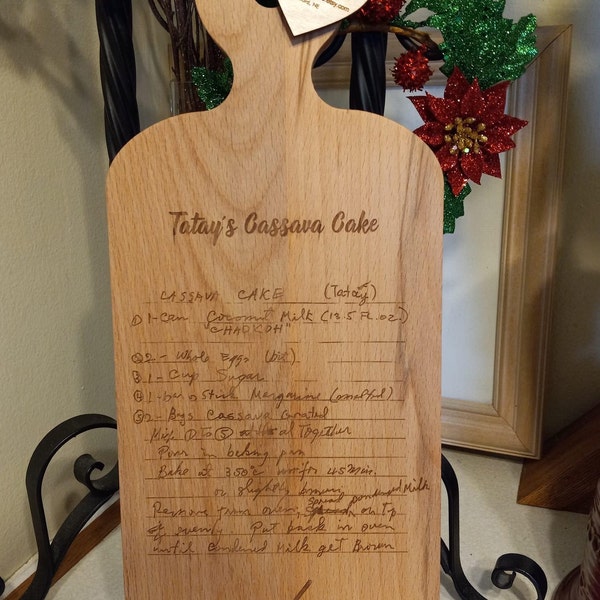 Tatay's Cassava Cake
CASSAVA CAKE (Tatay)
① 1-Can Coconut Milk (13.5 FL.OZ.)
"CHAOKOH"
② 2-Whole Eggs
3. 1-Cup Sugar
④ 1-bar Stick Margarine
⑤ 2-Bags Cassava Grated
Mix ① To ⑤ all Together
Pour in baking pan
Bake at 350° for 45 min.
or slightly brown
Remove from oven, Spread condensed Milk on Top
evenly Put back in oven
until Condensed Milk get Brown